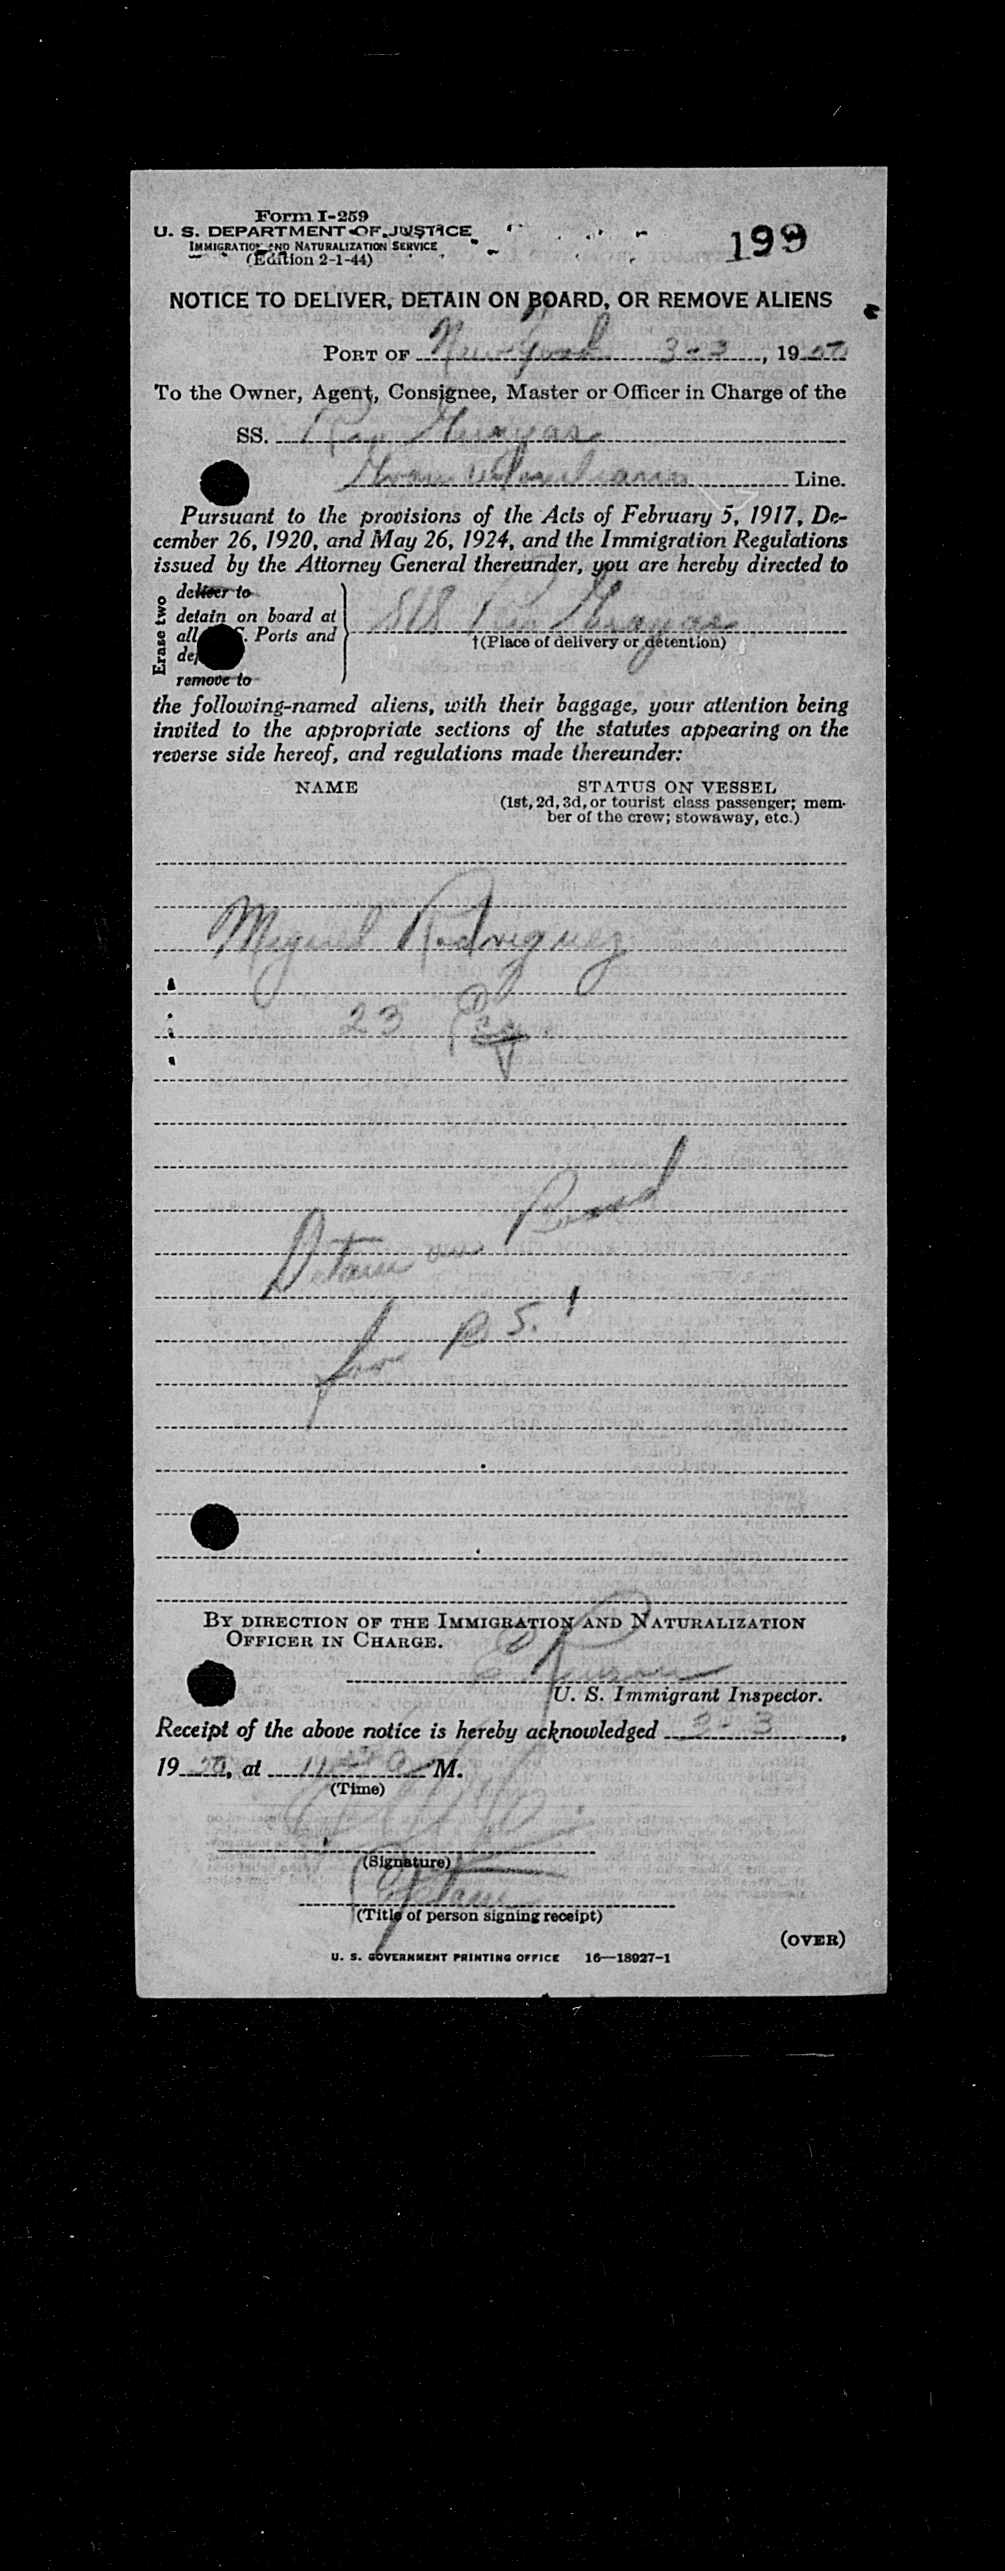 Form I-259
U. S. DEPARTMENT OF JUSTICE
IMMIGRATION AND NATURALIZATION SERVICE
(Edition 2-1-44)
199
NOTICE TO DELIVER, DETAIN ON BOARD, OR REMOVE ALIENS
PORT OF New York 3-3, 1950
To the Owner, Agent, Consignee, Master or Officer in Charge of the
SS. Rio Guayas
Line.
Pursuant to the provisions of the Acts of February 5, 1917, De-
cember 26, 1920, and May 26, 1924, and the Immigration Regulations
issued by the Attorney General thereunder, you are hereby directed to
Erase two
deliver to
detain on board at
all Ports and
remove to
S/S Rio Guayas
†(Place of delivery or detention)
the following-named aliens, with their baggage, your attention being
invited to the appropriate sections of the statutes appearing on the
reverse side hereof, and regulations made thereunder:
NAME
STATUS ON VESSEL
(1st, 2d, 3d, or tourist class passenger; mem-
ber of the crew; stowaway, etc.)
Miguel Rodriguez
23
Detain on Board
for B S. I
BY DIRECTION OF THE IMMIGRATION AND NATURALIZATION
OFFICER IN CHARGE.
U. S. Immigrant Inspector.
Receipt of the above notice is hereby acknowledged 3-3,
1950, at M.
(Time)
(Signature)
(Title of person signing receipt)
(OVER)
U. S. GOVERNMENT PRINTING OFFICE 16—18927-1